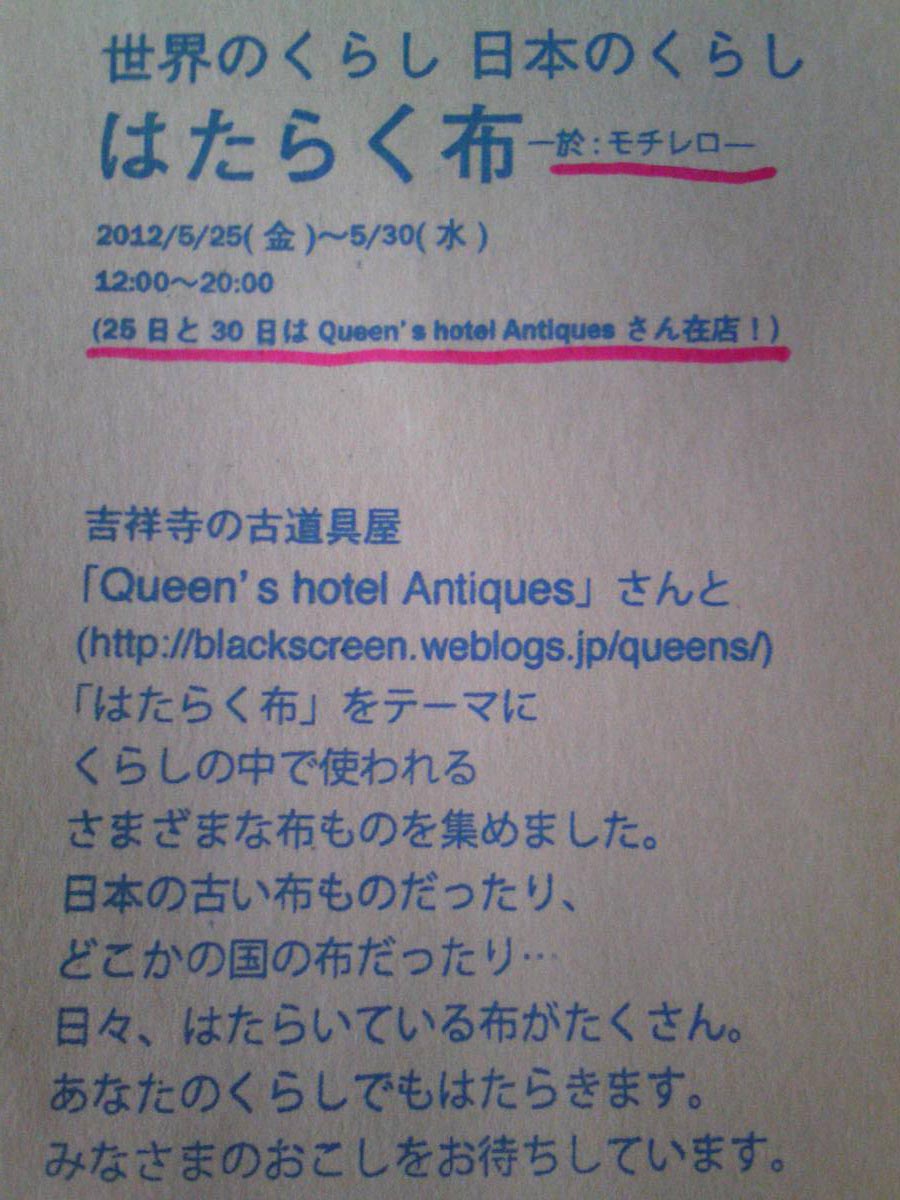 世界のくらし 日本のくらし
はたらく布 ー於：モチレローー
2012/5/25( 金 )～5/30( 水 )
12:00～20:00
(25 日と 30 日は Queen’s hotel Antiques さん在店！)
吉祥寺の古道具屋
「Queen’s hotel Antiques」さんと
(http://blackscreen.weblogs.jp/queens/)
「はたらく布」をテーマに
くらしの中で使われる
さまざまな布ものを集めました。
日本の古い布ものだったり、
どこかの国の布だったり…
日々、はたらいている布がたくさん。
あなたのくらしでもはたらきます。
みなさまのおこしをお待ちしています。